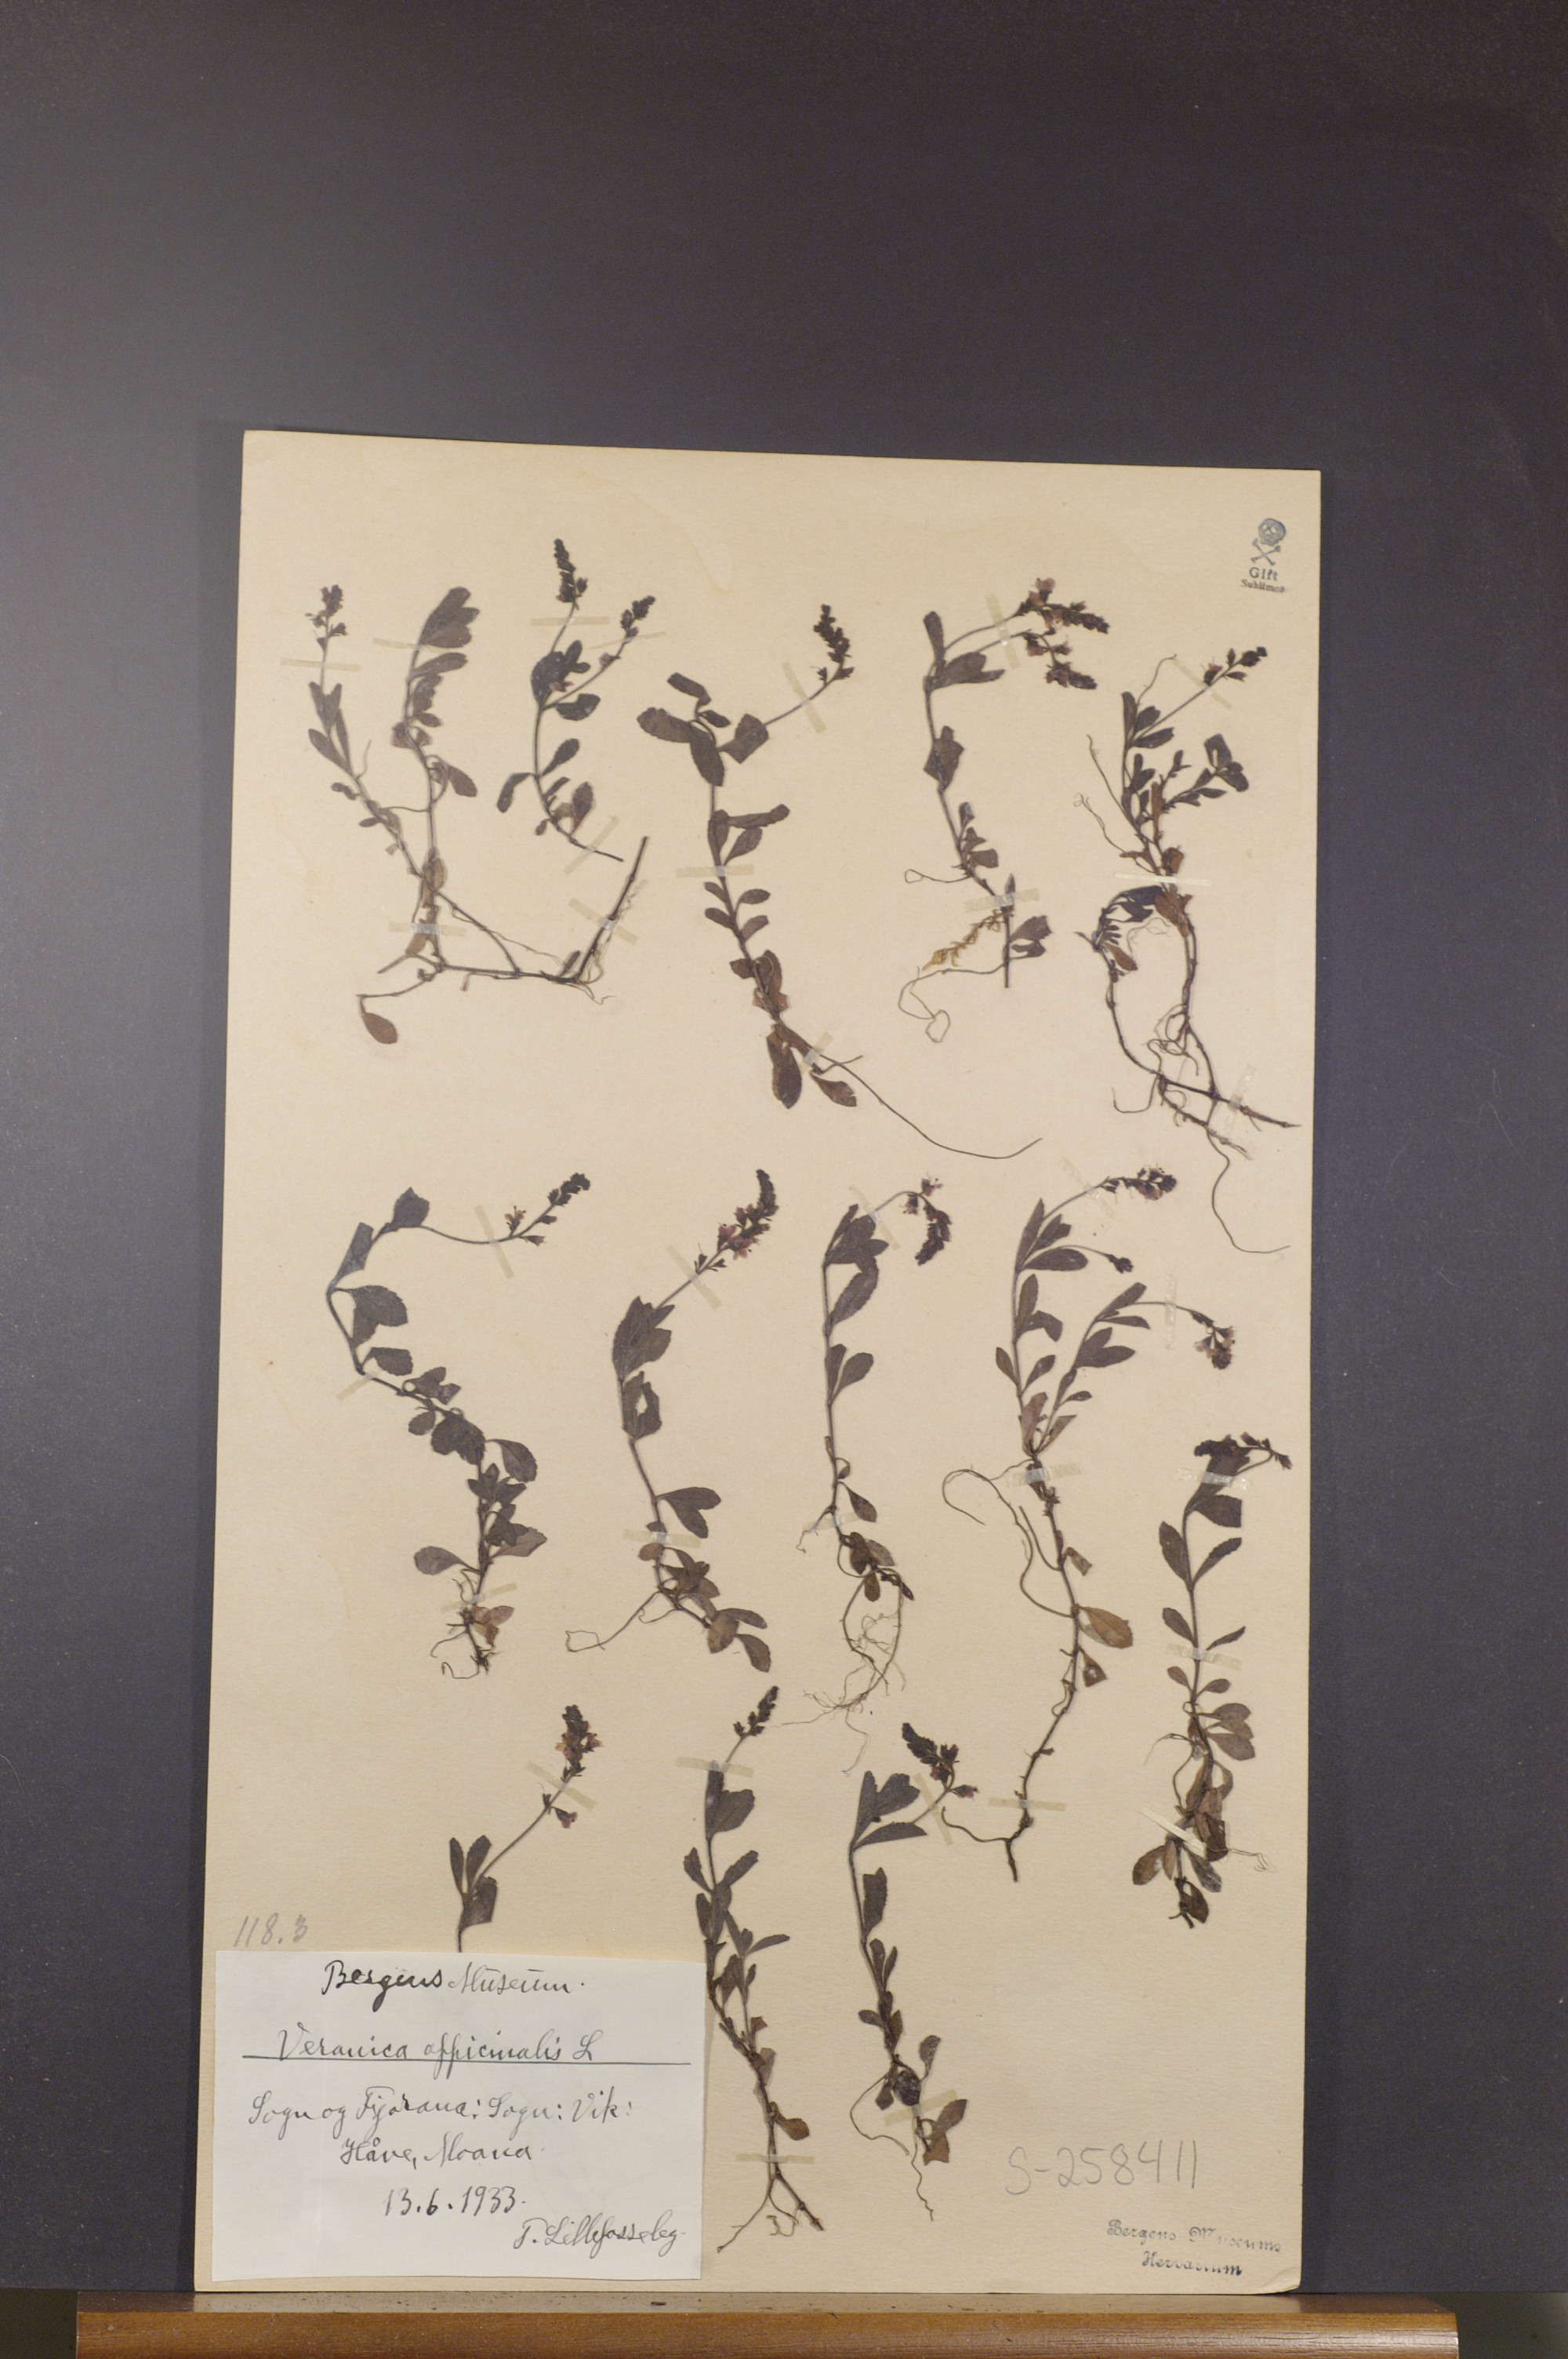 Gift
Sublimat
118.3
Bergens Museum.
Veronica officinalis L
Sogn og Fjorana: Sogn: Vik:
Håve, Moana
13.6.1933.
T. Lillefosse leg.
S-258411
Bergens Museums
Herbarium